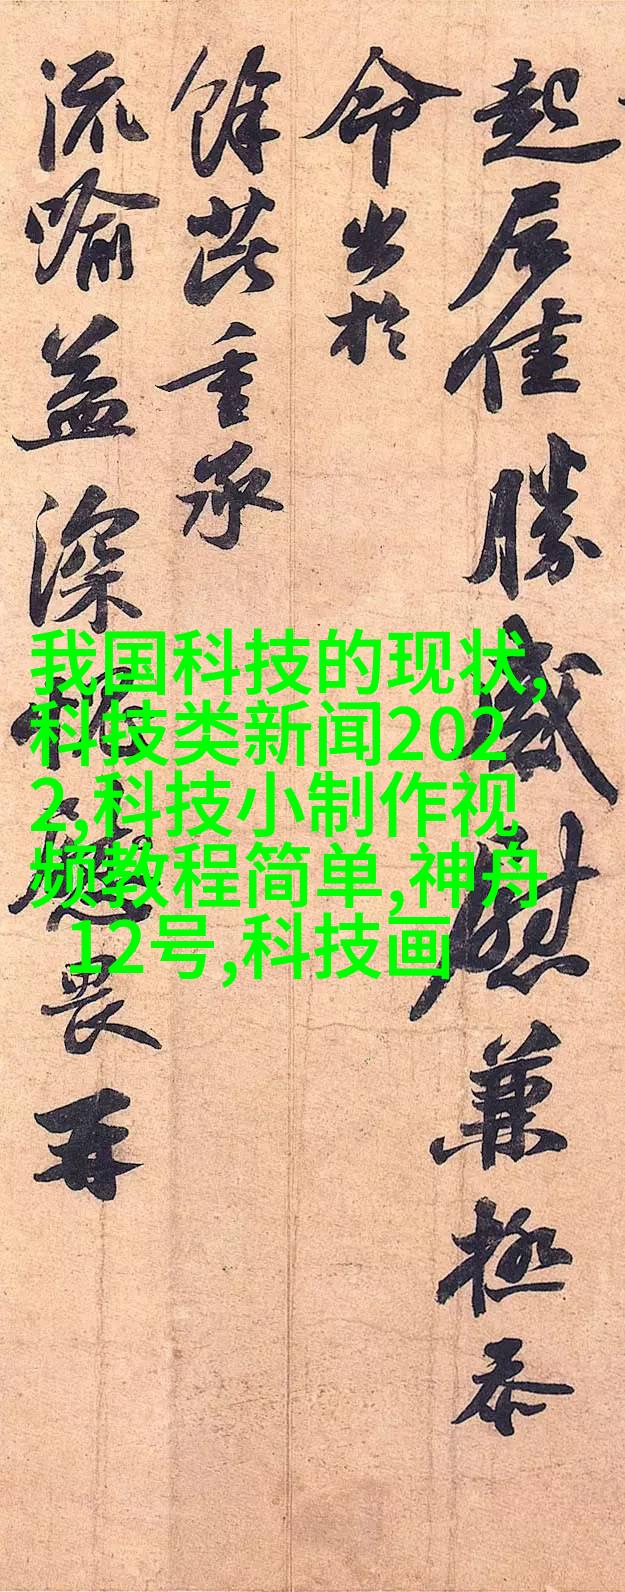 起居佳勝感慰兼極忝
命出於
餘芘重承
流喻益深愧畏再
我国科技的现状,
科技类新闻202
2,科技小制作视
频教程简单,神舟
12号,科技画